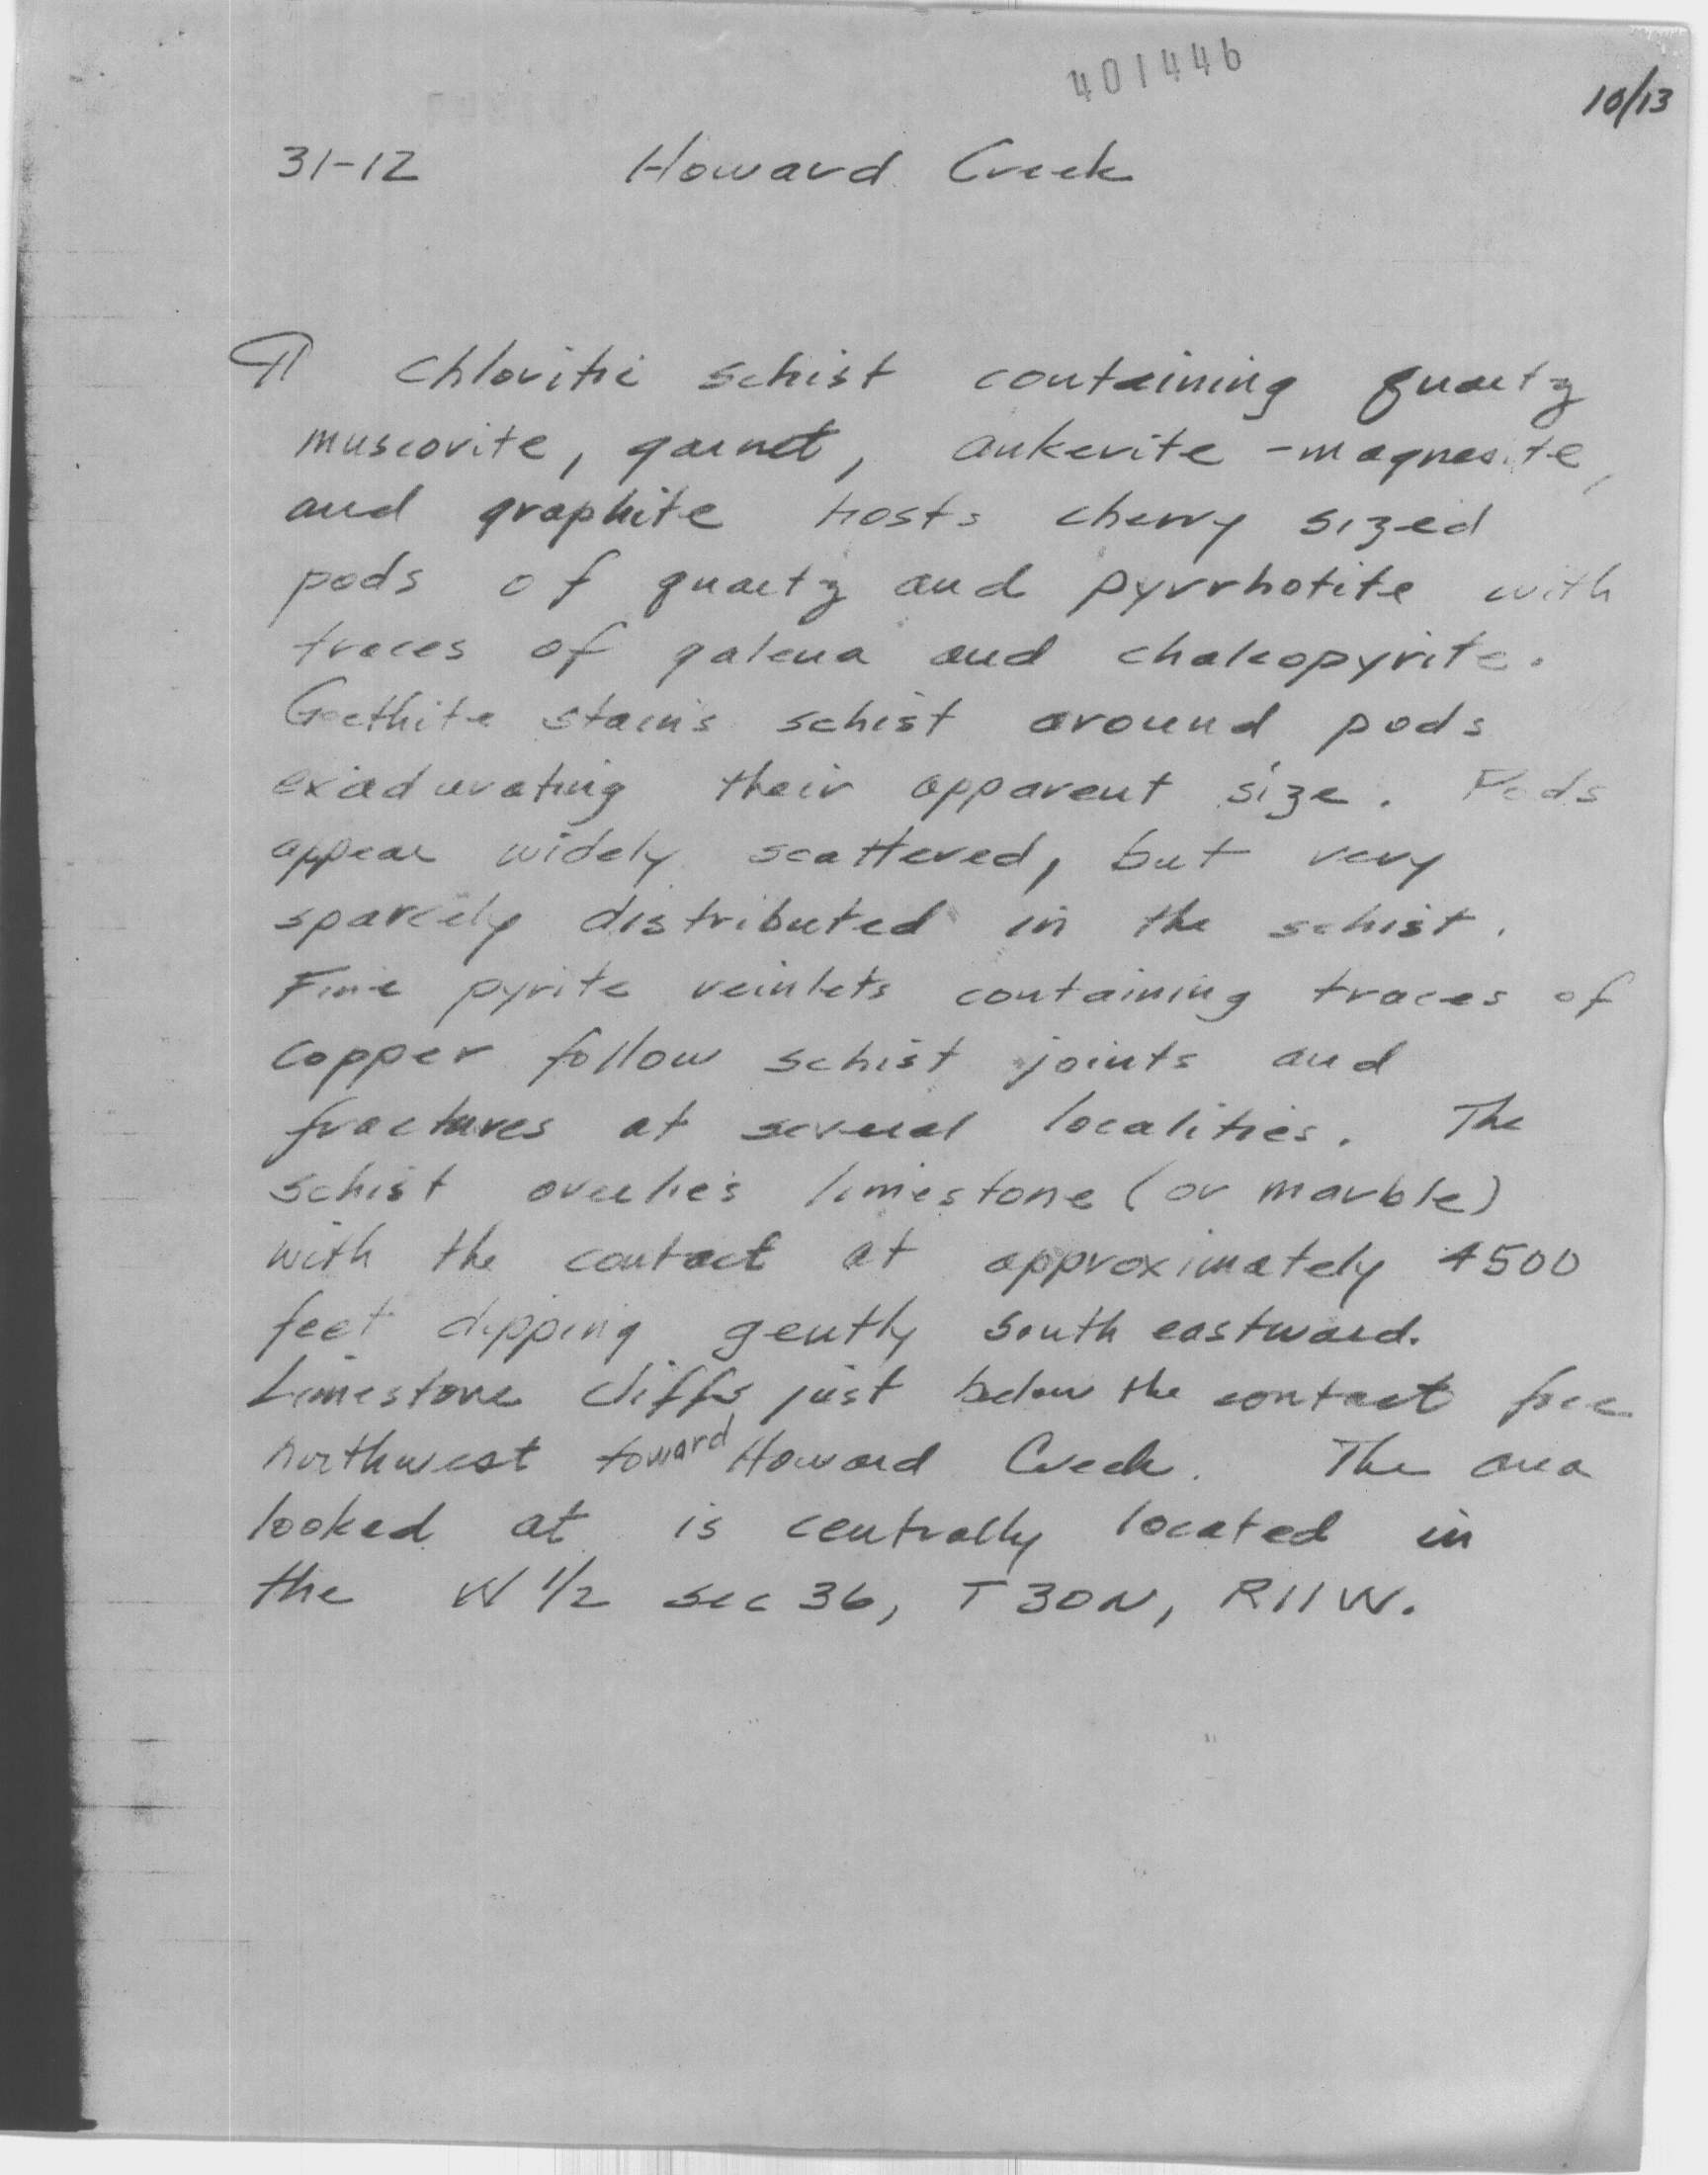 401446
10/13
31-12 Howard Creek
¶ Chloritic schist containing quartz
muscovite, garnet, ankerite - magnesite,
and graphite hosts cherry sized
pods of quartz and pyrrhotite with
traces of galena and chalcopyrite.
Goethite stains schist around pods
exadurating their apparent size. Pods
appear widely scattered, but very
sparcely distributed in the schist.
Fine pyrite veinlets containing traces of
copper follow schist joints and
fractures at several localities. The
schist overlies limestone (or marble)
with the contact at approximately 4500
feet dipping gently south eastward.
Limestone cliffs just below the contact face
northwest toward Howard Creek. The area
looked at is centrally located in
the W 1/2 sec 36, T30N, R11W.